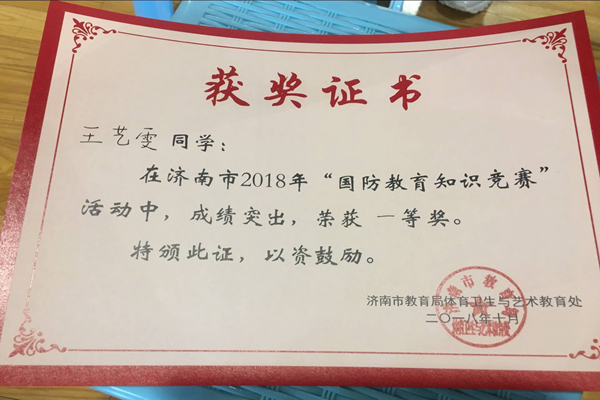 获奖证书
王艺雯同学：
在济南市2018年“国防教育知识竞赛”
活动中，成绩突出，荣获 一等奖。
特颁此证，以资鼓励。
济南市教育局体育卫生与艺术教育处
二〇一八年十月